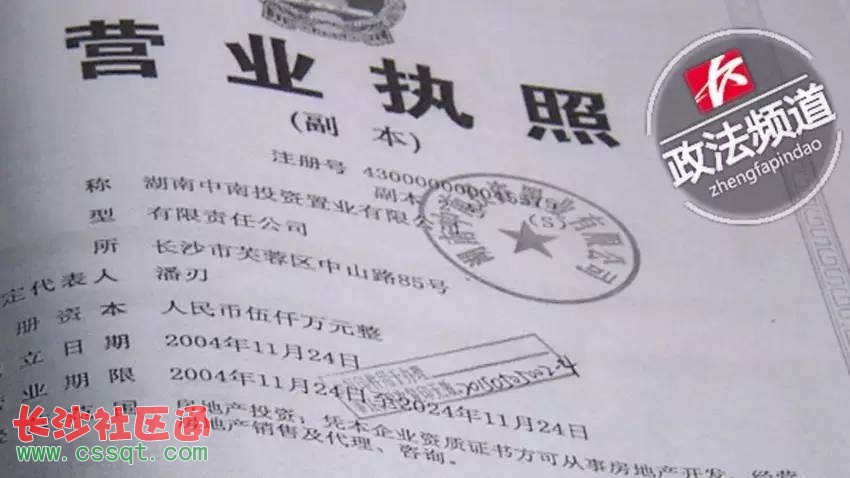 营业执照
(副 本)
注册号 430000000045375
副本号
(S)
称 湖南中南投资置业有限公司
型 有限责任公司
所 长沙市芙蓉区中山路85号
定代表人 潘刃
册资本 人民币伍仟万元整
立日期 2004年11月24日
业期限 2004年11月24日至2024年11月24日
范围 房地产投资；凭本企业资质证书方可从事房地产开发、经营
地产销售及代理、咨询。
政法频道
zhengfapindao
长沙社区通
www.cssqt.com